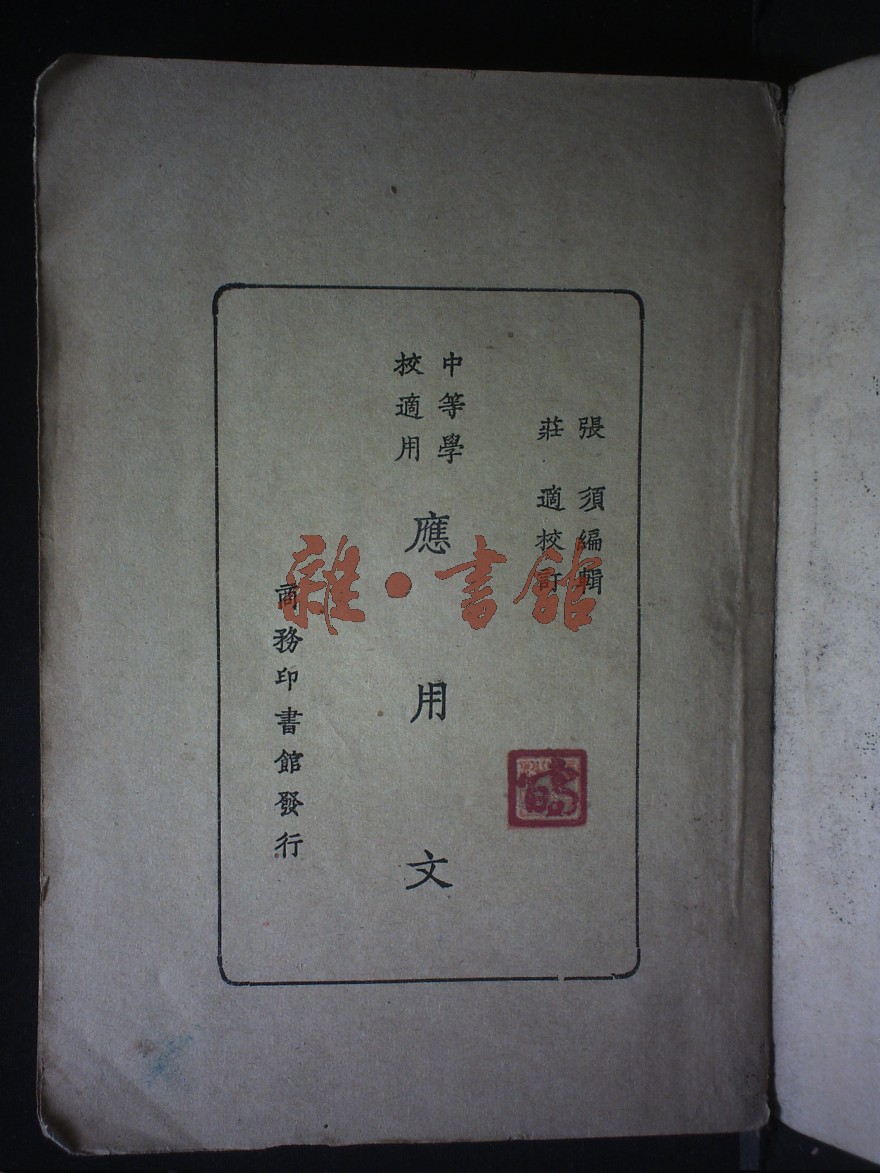 張須編輯
莊適校訂
中等學
校適用
應用文
商務印書館發行
雜·書館